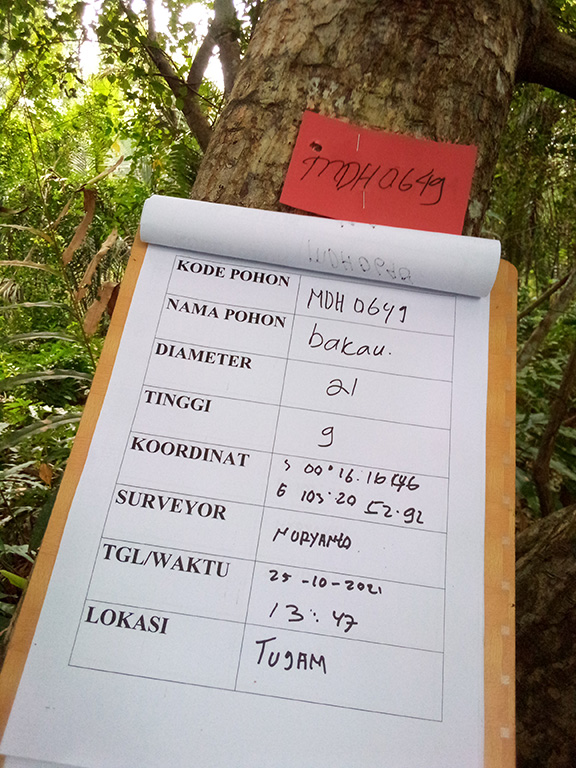 MDH0649
KODE POHON MDH 0649
NAMA POHON bakau.
DIAMETER 21
TINGGI 9
KOORDINAT S 00° 16. 16
E 103. 20 52.92
SURVEYOR NURYANTO
TGL/WAKTU 25-10-2021
13:47
LOKASI TUGAM